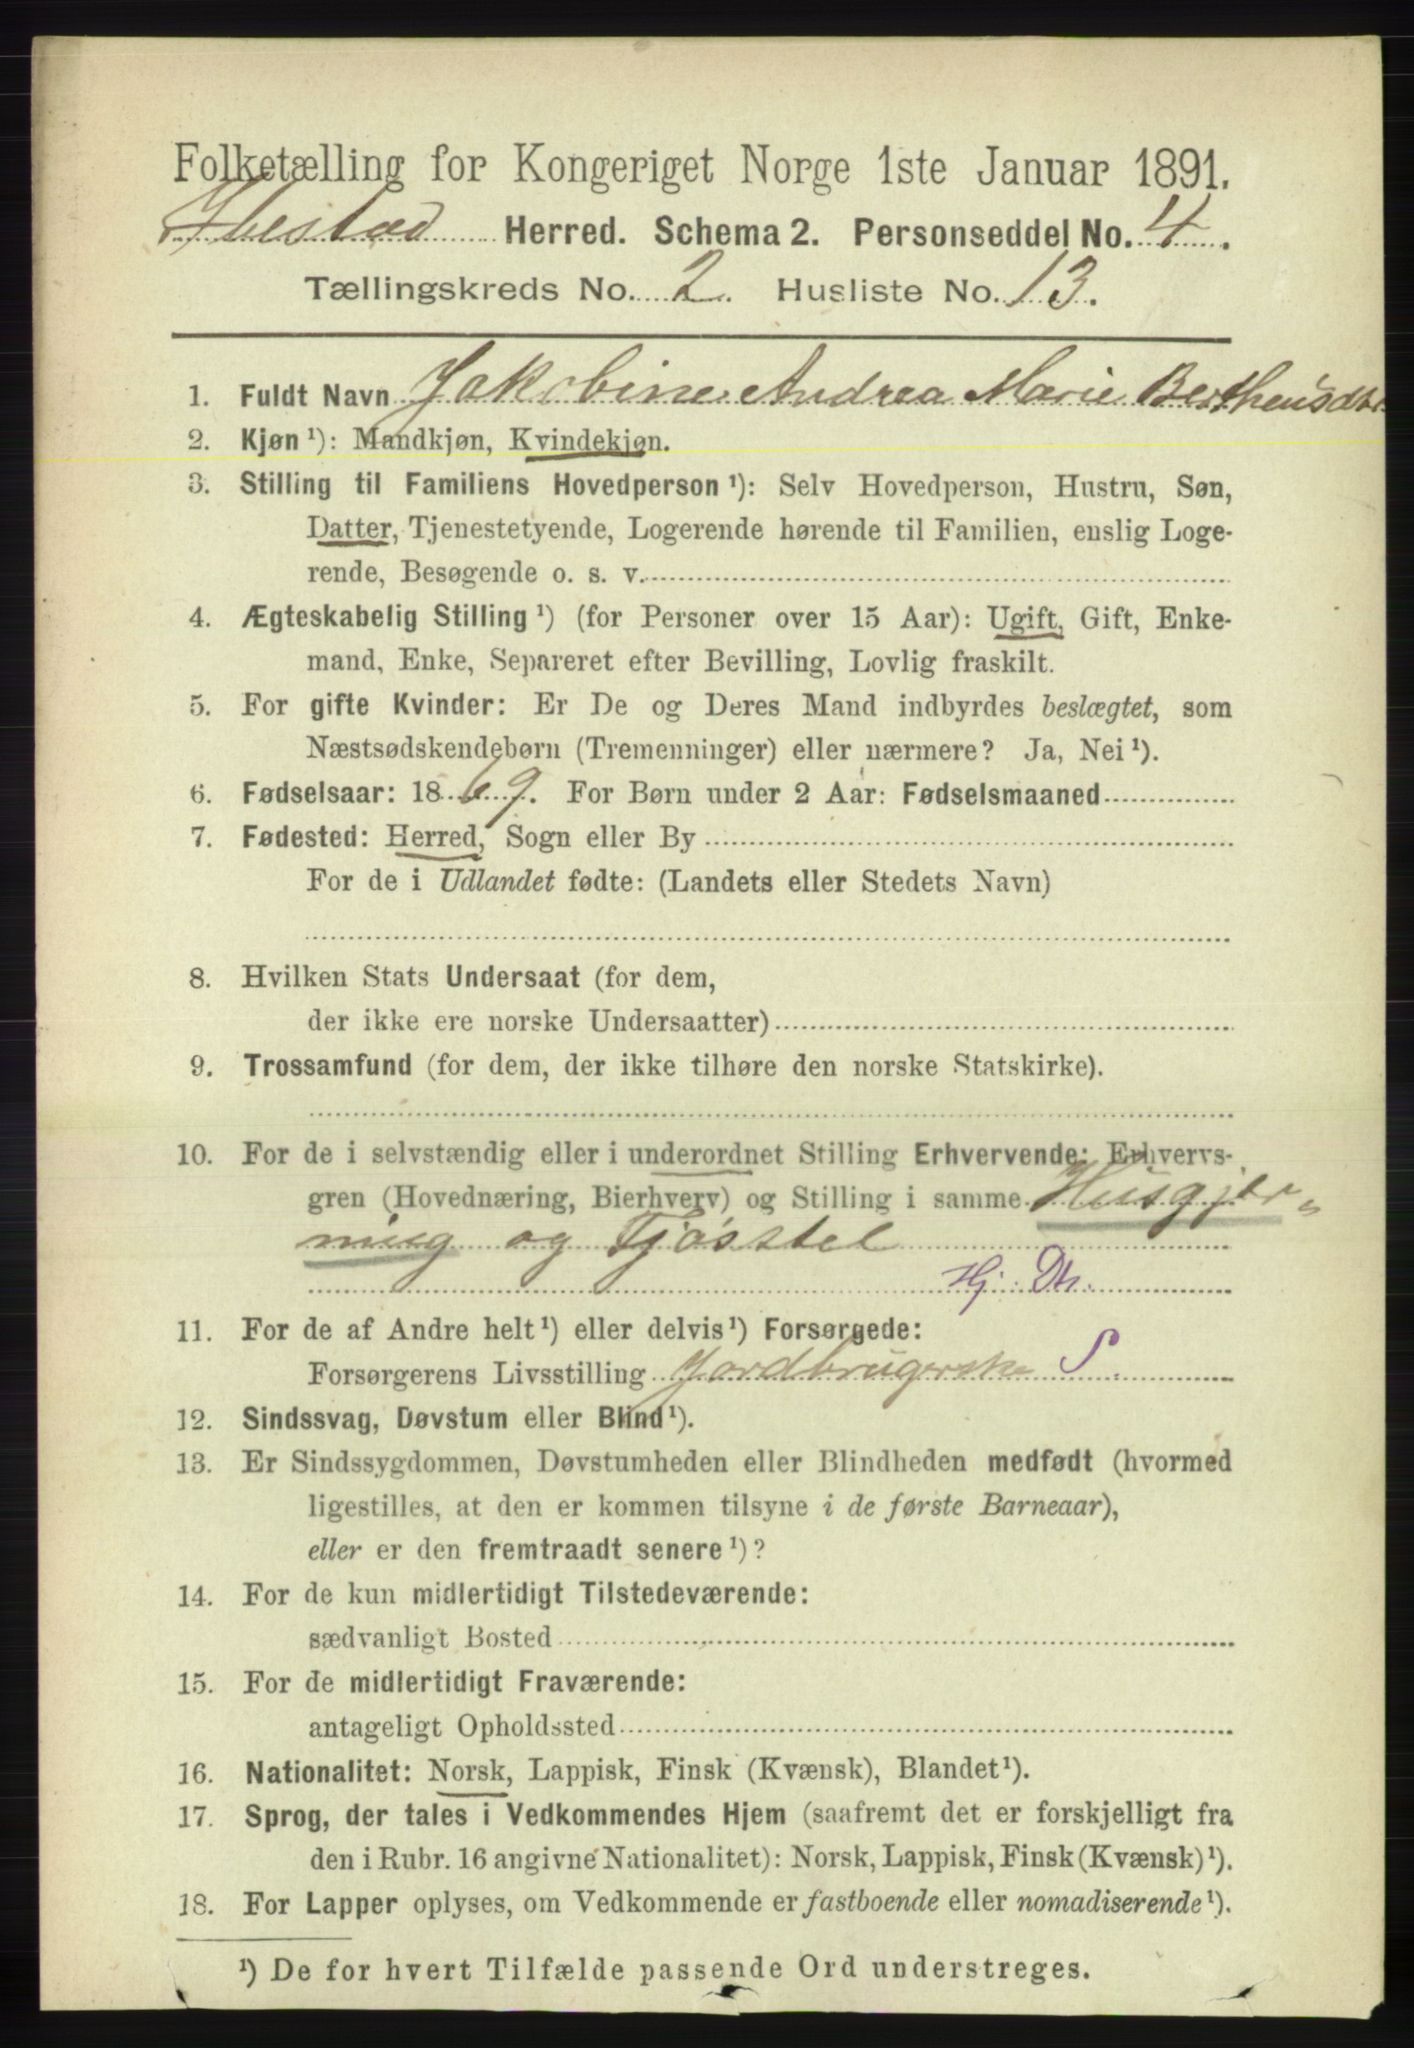 Folketælling for Kongeriget Norge 1ste Januar 1891.
Ibestad Herred. Schema 2. Personseddel No. 4.
Tællingskreds No. 2. Husliste No. 13.
1. Fuldt Navn Jakobine Andrea Marie Berthensdtr
2. Kjøn ¹): Mandkjøn, Kvindekjøn.
3. Stilling til Familiens Hovedperson ¹): Selv Hovedperson, Hustru, Søn,
Datter, Tjenestetyende, Logerende hørende til Familien, enslig Loge-
rende, Besøgende o. s. v.
4. Ægteskabelig Stilling ¹) (for Personer over 15 Aar): Ugift, Gift, Enke-
mand, Enke, Separeret efter Bevilling, Lovlig fraskilt.
5. For gifte Kvinder: Er De og Deres Mand indbyrdes beslægtet, som
Næstsødskendebørn (Tremenninger) eller nærmere? Ja, Nei ¹).
6. Fødselsaar: 1869. For Børn under 2 Aar: Fødselsmaaned
7. Fødested: Herred, Sogn eller By
For de i Udlandet fødte: (Landets eller Stedets Navn)
8. Hvilken Stats Undersaat (for dem,
der ikke ere norske Undersaatter)
9. Trossamfund (for dem, der ikke tilhøre den norske Statskirke).
10. For de i selvstændig eller i underordnet Stilling Erhvervende: Erhvervs-
gren (Hovednæring, Bierhverv) og Stilling i samme Husgjer-
ning og Fjøsstel
Hj. Dtr.
11. For de af Andre helt ¹) eller delvis ¹) Forsørgede:
Forsørgerens Livsstilling Jordbrugerske S
12. Sindssvag, Døvstum eller Blind ¹).
13. Er Sindssygdommen, Døvstumheden eller Blindheden medfødt (hvormed
ligestilles, at den er kommen tilsyne i de første Barneaar),
eller er den fremtraadt senere ¹)?
14. For de kun midlertidigt Tilstedeværende:
sædvanligt Bosted
15. For de midlertidigt Fraværende:
antageligt Opholdssted
16. Nationalitet: Norsk, Lappisk, Finsk (Kvænsk), Blandet ¹).
17. Sprog, der tales i Vedkommendes Hjem (saafremt det er forskjelligt fra
den i Rubr. 16 angivne Nationalitet): Norsk, Lappisk, Finsk (Kvænsk) ¹).
18. For Lapper oplyses, om Vedkommende er fastboende eller nomadiserende ¹).
¹) De for hvert Tilfælde passende Ord understreges.